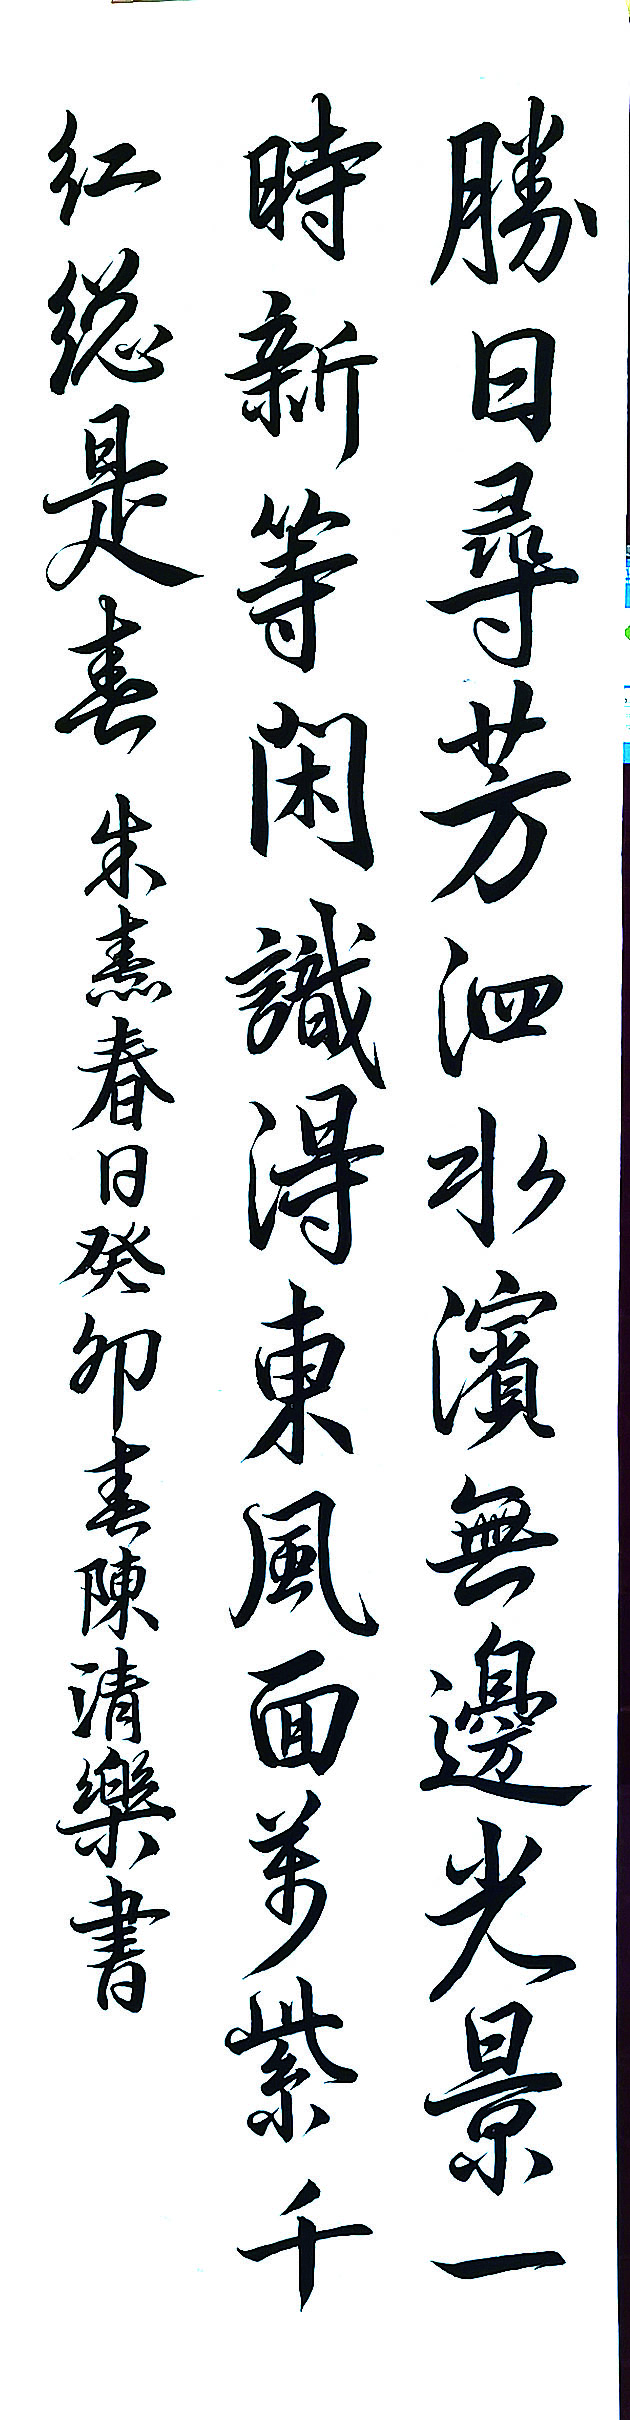 勝日尋芳泗水濱無邊光景一
時新等閑識得東風面萬紫千
紅總是春 朱熹春日癸卯春陳清樂書